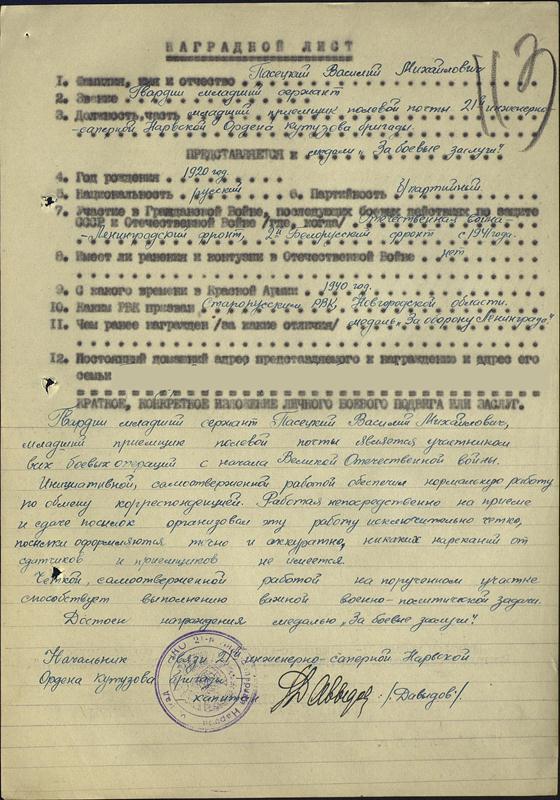 113
НАГРАДНОЙ ЛИСТ
1. Фамилия, имя и отчество Пасецкий Василий Михайлович
2. Звание Гвардии младший сержант
3. Должность, часть младший приемщик полевой почты 21й инженерно-
-саперной Нарвской Ордена Кутузова бригады.
ПРЕДСТАВЛЯЕТСЯ к медали „За боевые заслуги"
4. Год рождения 1920 год.
5. Национальность русский 6. Партийность б/партийный.
7. Участие в Гражданской Войне, последующих боевых действиях по защите
СССР и Отечественной Войне /где, когда/ Отечественная война-
-Ленинградский фронт, 2й Белорусский фронт с 1941 года.
8. Имеет ли ранения и контузии в Отечественной Войне нет
9. С какого времени в Красной Армии 1940 год.
10. Каким РВК призван Старорусским РВК, Новгородской области.
11. Чем ранее награжден /за какие отличия/ медаль „За оборону Ленинграда"
12. Постоянный домашний адрес представляемого к награждению и адрес его
семьи
КРАТКОЕ, КОНКРЕТНОЕ ИЗЛОЖЕНИЕ ЛИЧНОГО БОЕВОГО ПОДВИГА ИЛИ ЗАСЛУГ.
Гвардии младший сержант Пасецкий Василий Михайлович,
младший приемщик полевой почты является участником
всех боевых операций с начала Великой Отечественной войны.
Инициативной, самоотверженной работой обеспечил нормальную работу
по обмену корреспонденцией. Работая непосредственно на приеме
и сдаче посылок организовал эту работу исключительно четко,
посылки оформляются точно и аккуратно, никаких нареканий от
сдатчиков и приемщиков не имеется.
Четкой, самоотверженной работой на порученном участке
способствует выполнению важной военно-политической задачи.
Достоин награждения медалью „За боевые заслуги".
Начальник связи 21й инженерно-саперной Нарвской
Ордена Кутузова бригады
капитан Давыдов /Давыдов/.